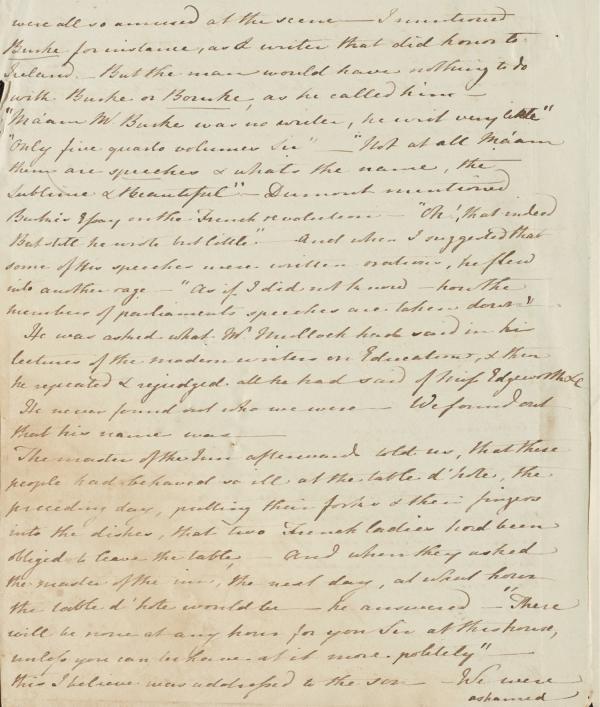 were all so amused at the scene — I mentioned
Burke for instance, as a writer that did honor to
Ireland — But the man would have nothing to do
with Burke or Bourke, as he called him —
"Ma'am Mr Burke was no writer, he writ very little"
"Only five quarto volumes Sir" — "Not at all Ma'am
them are speeches & what's the name, the
Sublime & Beautiful" — Dumont mentioned
Burke's Essay on the French revolution — "Oh! that indeed
But still he wrote but little" — And when I suggested that
some of his speeches were written orations, he flew
into another rage — "As if I did not know — how the
members of parliaments speeches are taken down"
He was asked what Mr Mulloch had said in his
lectures of the modern writers on Education, & then
he repeated & rejudged all he had said of Miss Edgeworth &c
He never found out who we were — We found out
that his name was —
The master of the Inn afterwards told us, that these
people had behaved so ill at the table d'hote, the
preceding day, putting their forks & their fingers
into the dishes, that two French ladies had been
obliged to leave the table — And when they asked
the master of the inn, the next day, at what hour
the table d'hote would be — he answered — "There
will be none at any hour for you Sir at this house,
unless you can behave at it more politely" —
this I believe was addressed to the son — We were
ashamed